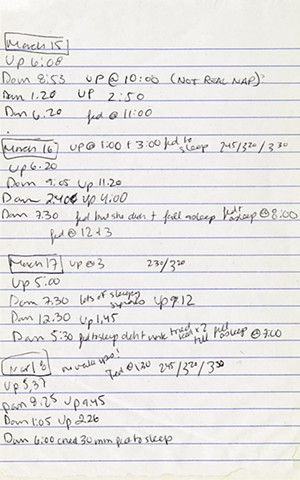 March 15
Up 6:08
Down 8:53 UP @ 10:00 (NOT REAL NAP)
Down 1.20 UP 2:50
Down 6:20 fed @ 11:00
March 16 UP @ 1:00 + 3:00 fed to sleep 245/320/330
Up 6.20
Down 9:05 Up 11.20
Down 2:40 Up 4:00
Down 7.30 fed but she didn't fall asleep fed + asleep @ 8:00
fed @ 12 + 3
March 17 Up @ 3 230/320
Up 5:00
Down 7:30 lots of sleepy Up 9.12
Down 12.30 Up 1.45
Down 5:30 fed to sleep didn't work tried x 2 fell asleep @ 7:00
no wake ups! fed @ 1.30 245/320/330
Up 5,37
Down 8:25 Up 9.45
Down 1:05 Up 2.26
Down 6:00 cried 30 mm fed to sleep